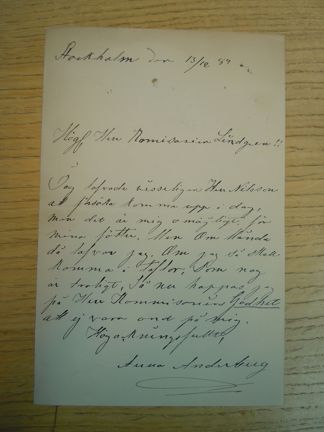 Stockholm den 13/12 84
Högf Herr Komisarien Lindgren!!
Jag lofvade visserligen Herr Nilsson
at försöka komma upp i dag,
men det är mig omögligt för
mina fötter. Men Om
då lofvar jag. Om jag så skall
komma i Tofflor, Som nog
är troligt, Så nu hoppas jag
på Herr Kommisariens Godhet
att ej vara ond på mig.
Högaktningsfullt,
Anna Anderberg